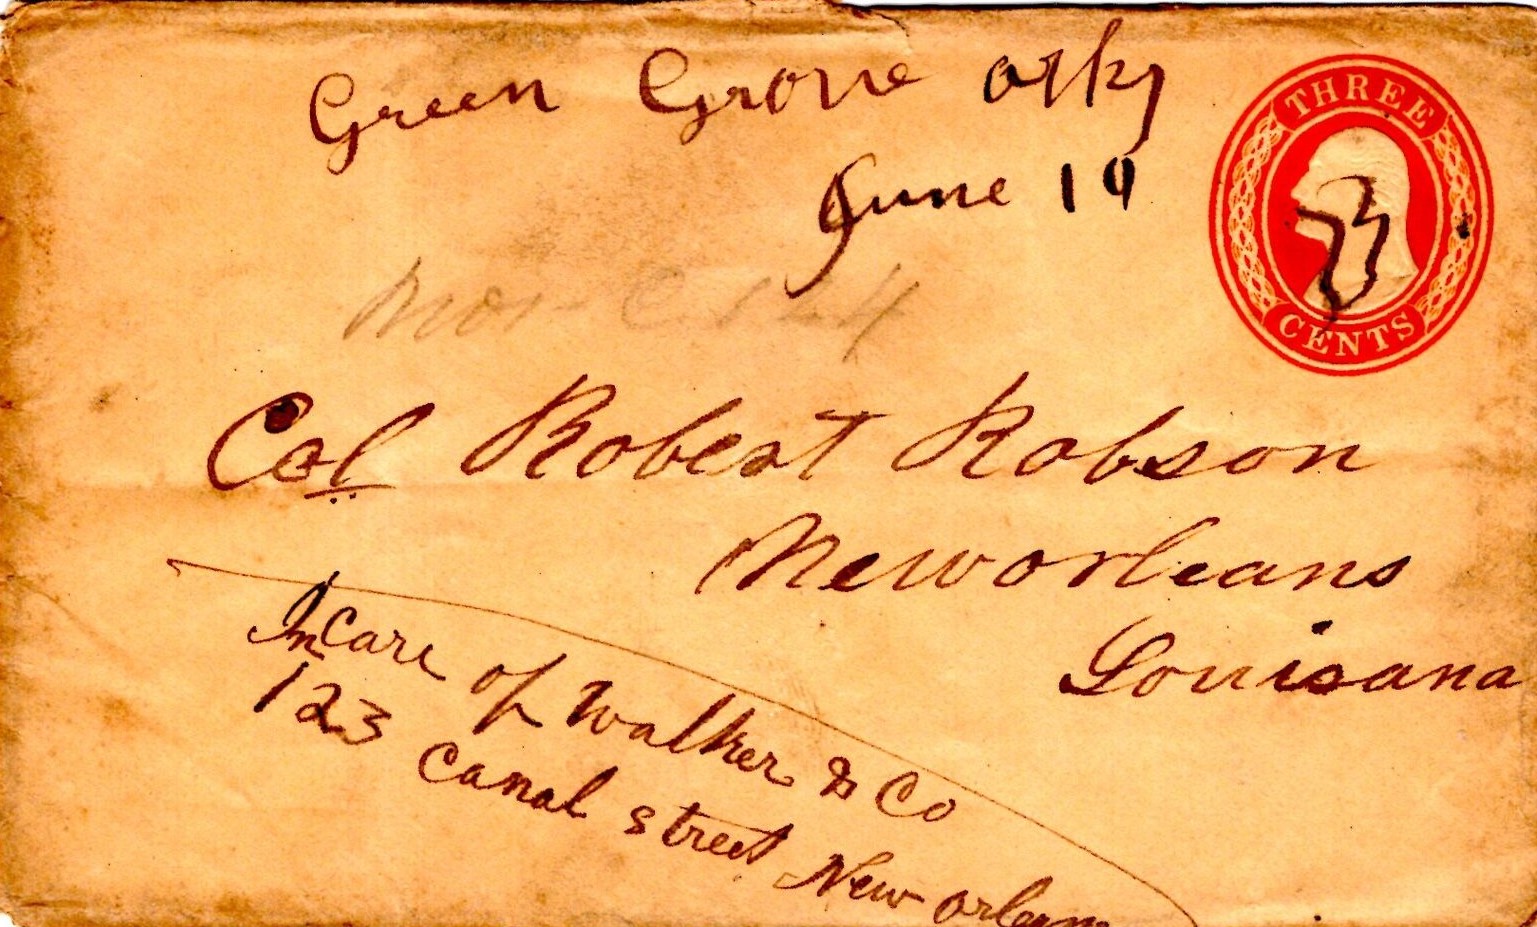 Green Grove arks
June 19
THREE
CENTS
Col Robert Robson
Neworleans
Louisana
In care of Walker & Co
123 canal street New orleans